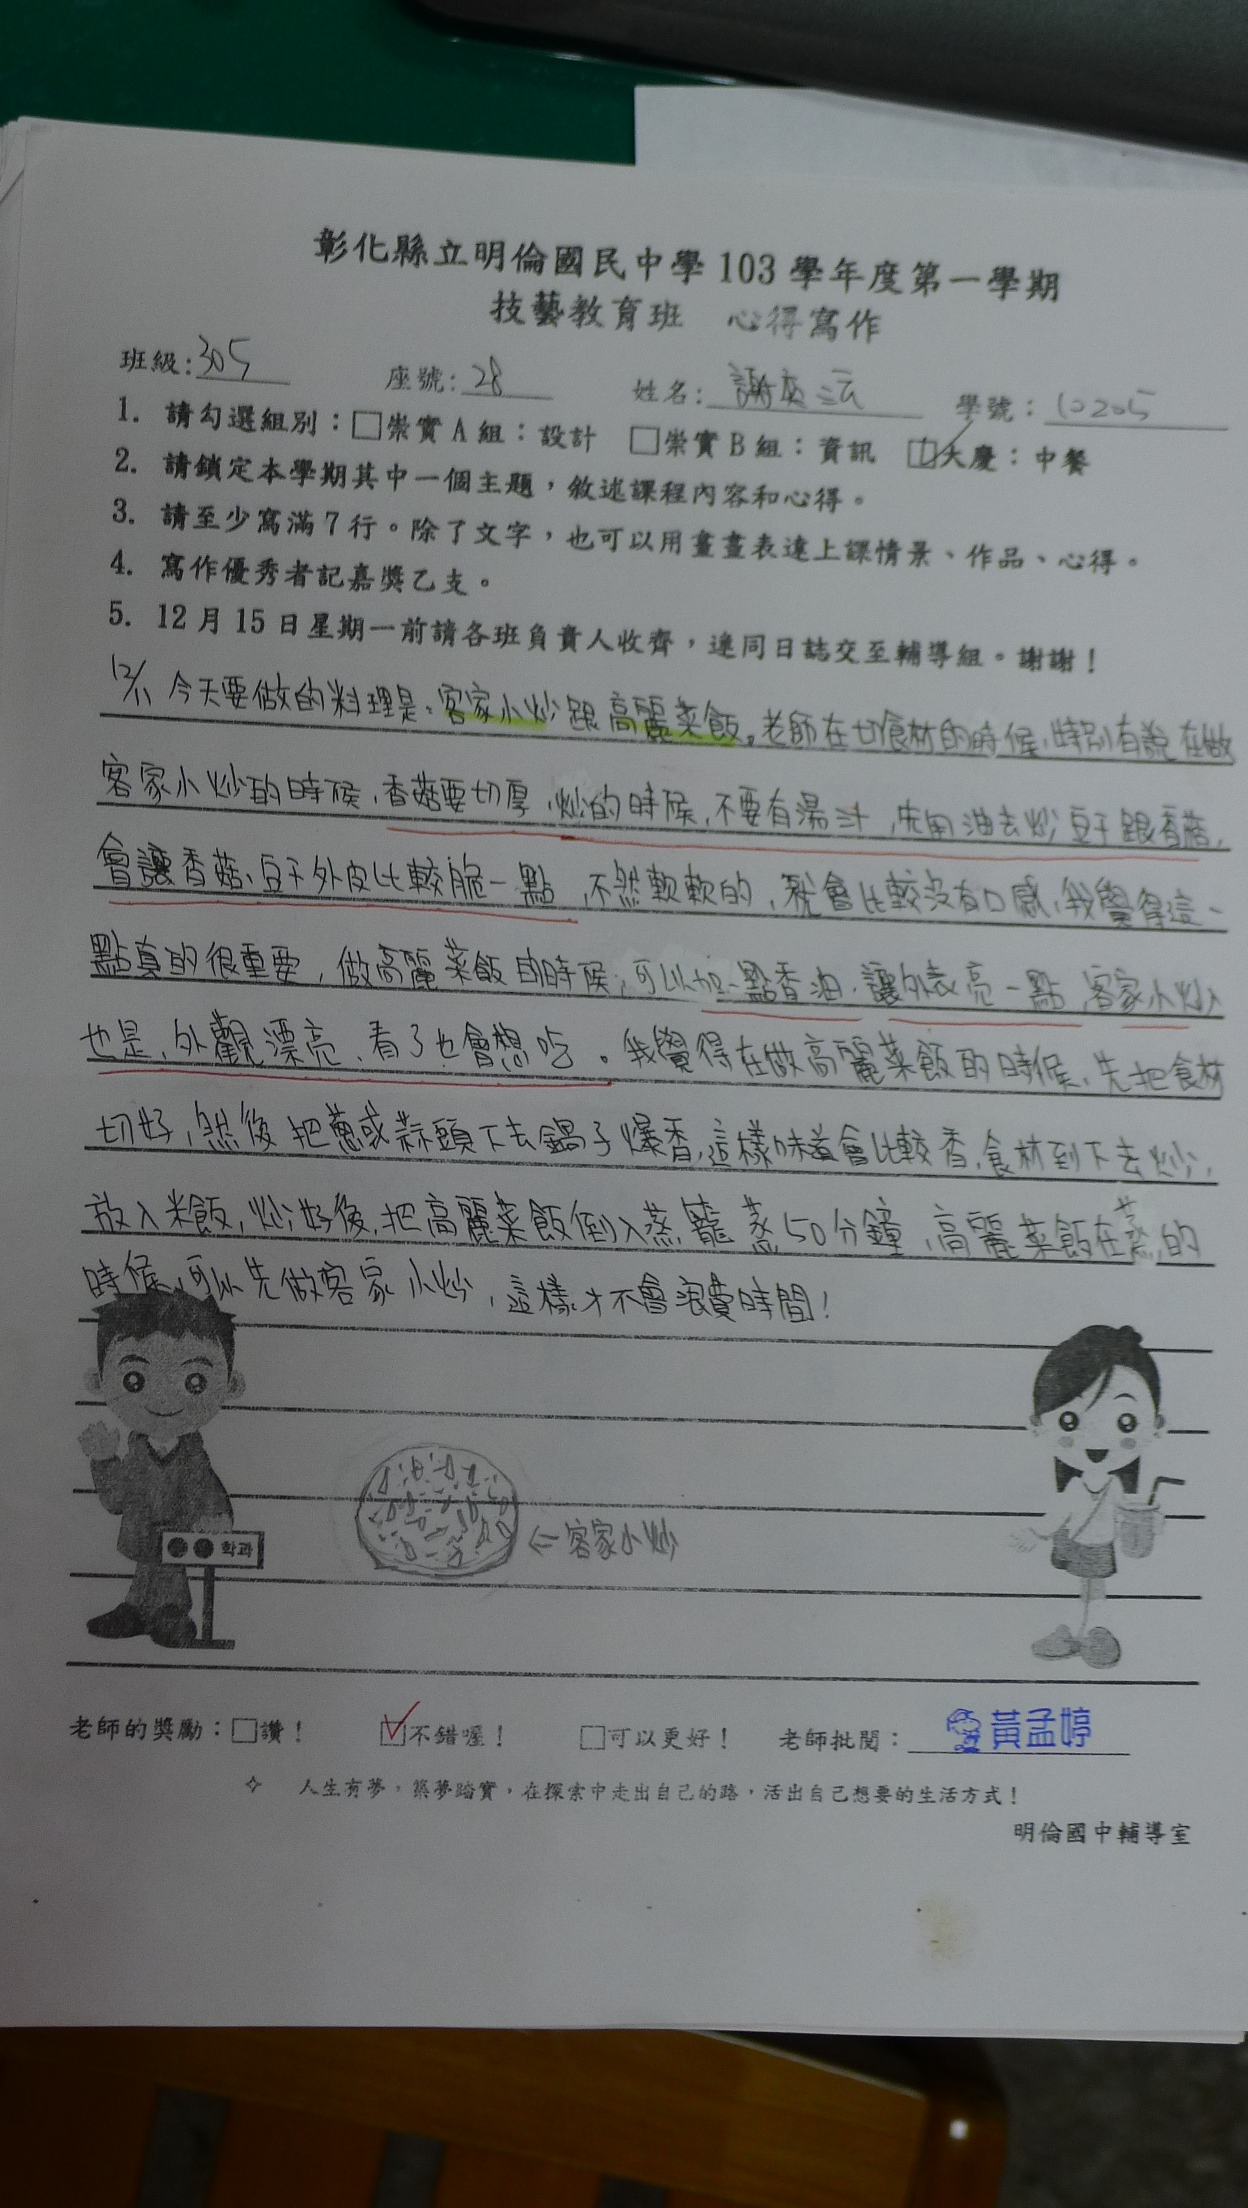 彰化縣立明倫國民中學103學年度第一學期
技藝教育班 心得寫作
班級:305 座號:28 姓名:謝 學號:10205
1. 請勾選組別：□崇實A組：設計 □崇實B組：資訊 ☑大慶：中餐
2. 請鎖定本學期其中一個主題，敘述課程內容和心得。
3. 請至少寫滿7行。除了文字，也可以用畫畫表達上課情景、作品、心得。
4. 寫作優秀者記嘉獎乙支。
5. 12月15日星期一前請各班負責人收齊，連同日誌交至輔導組。謝謝！
12/11 今天要做的料理是:客家小炒跟高麗菜飯。老師在切食材的時候,特別有說在做
客家小炒的時候,香菇要切厚,炒的時候,不要有湯汁,先用油去炒豆干跟香菇,
會讓香菇、豆干外皮比較脆一點,不然軟軟的,就會比較沒有口感,我覺得這一
點真的很重要,做高麗菜飯的時候,可以加一點香油,讓外表亮一點,客家小炒
也是,外觀漂亮,看了也會想吃。我覺得在做高麗菜飯的時候,先把食材
切好,然後把蔥或蒜頭下去鍋子爆香,這樣味道會比較香,食材到下去炒,
放入米飯,炒好後,把高麗菜飯倒入蒸籠蒸50分鐘,高麗菜飯在蒸的
時候,可以先做客家小炒,這樣才不會浪費時間!
학과
←客家小炒
老師的獎勵：□讚！ ☑不錯喔！ □可以更好！ 老師批閱：黃孟婷
✧ 人生有夢，築夢踏實，在探索中走出自己的路，活出自己想要的生活方式！
明倫國中輔導室